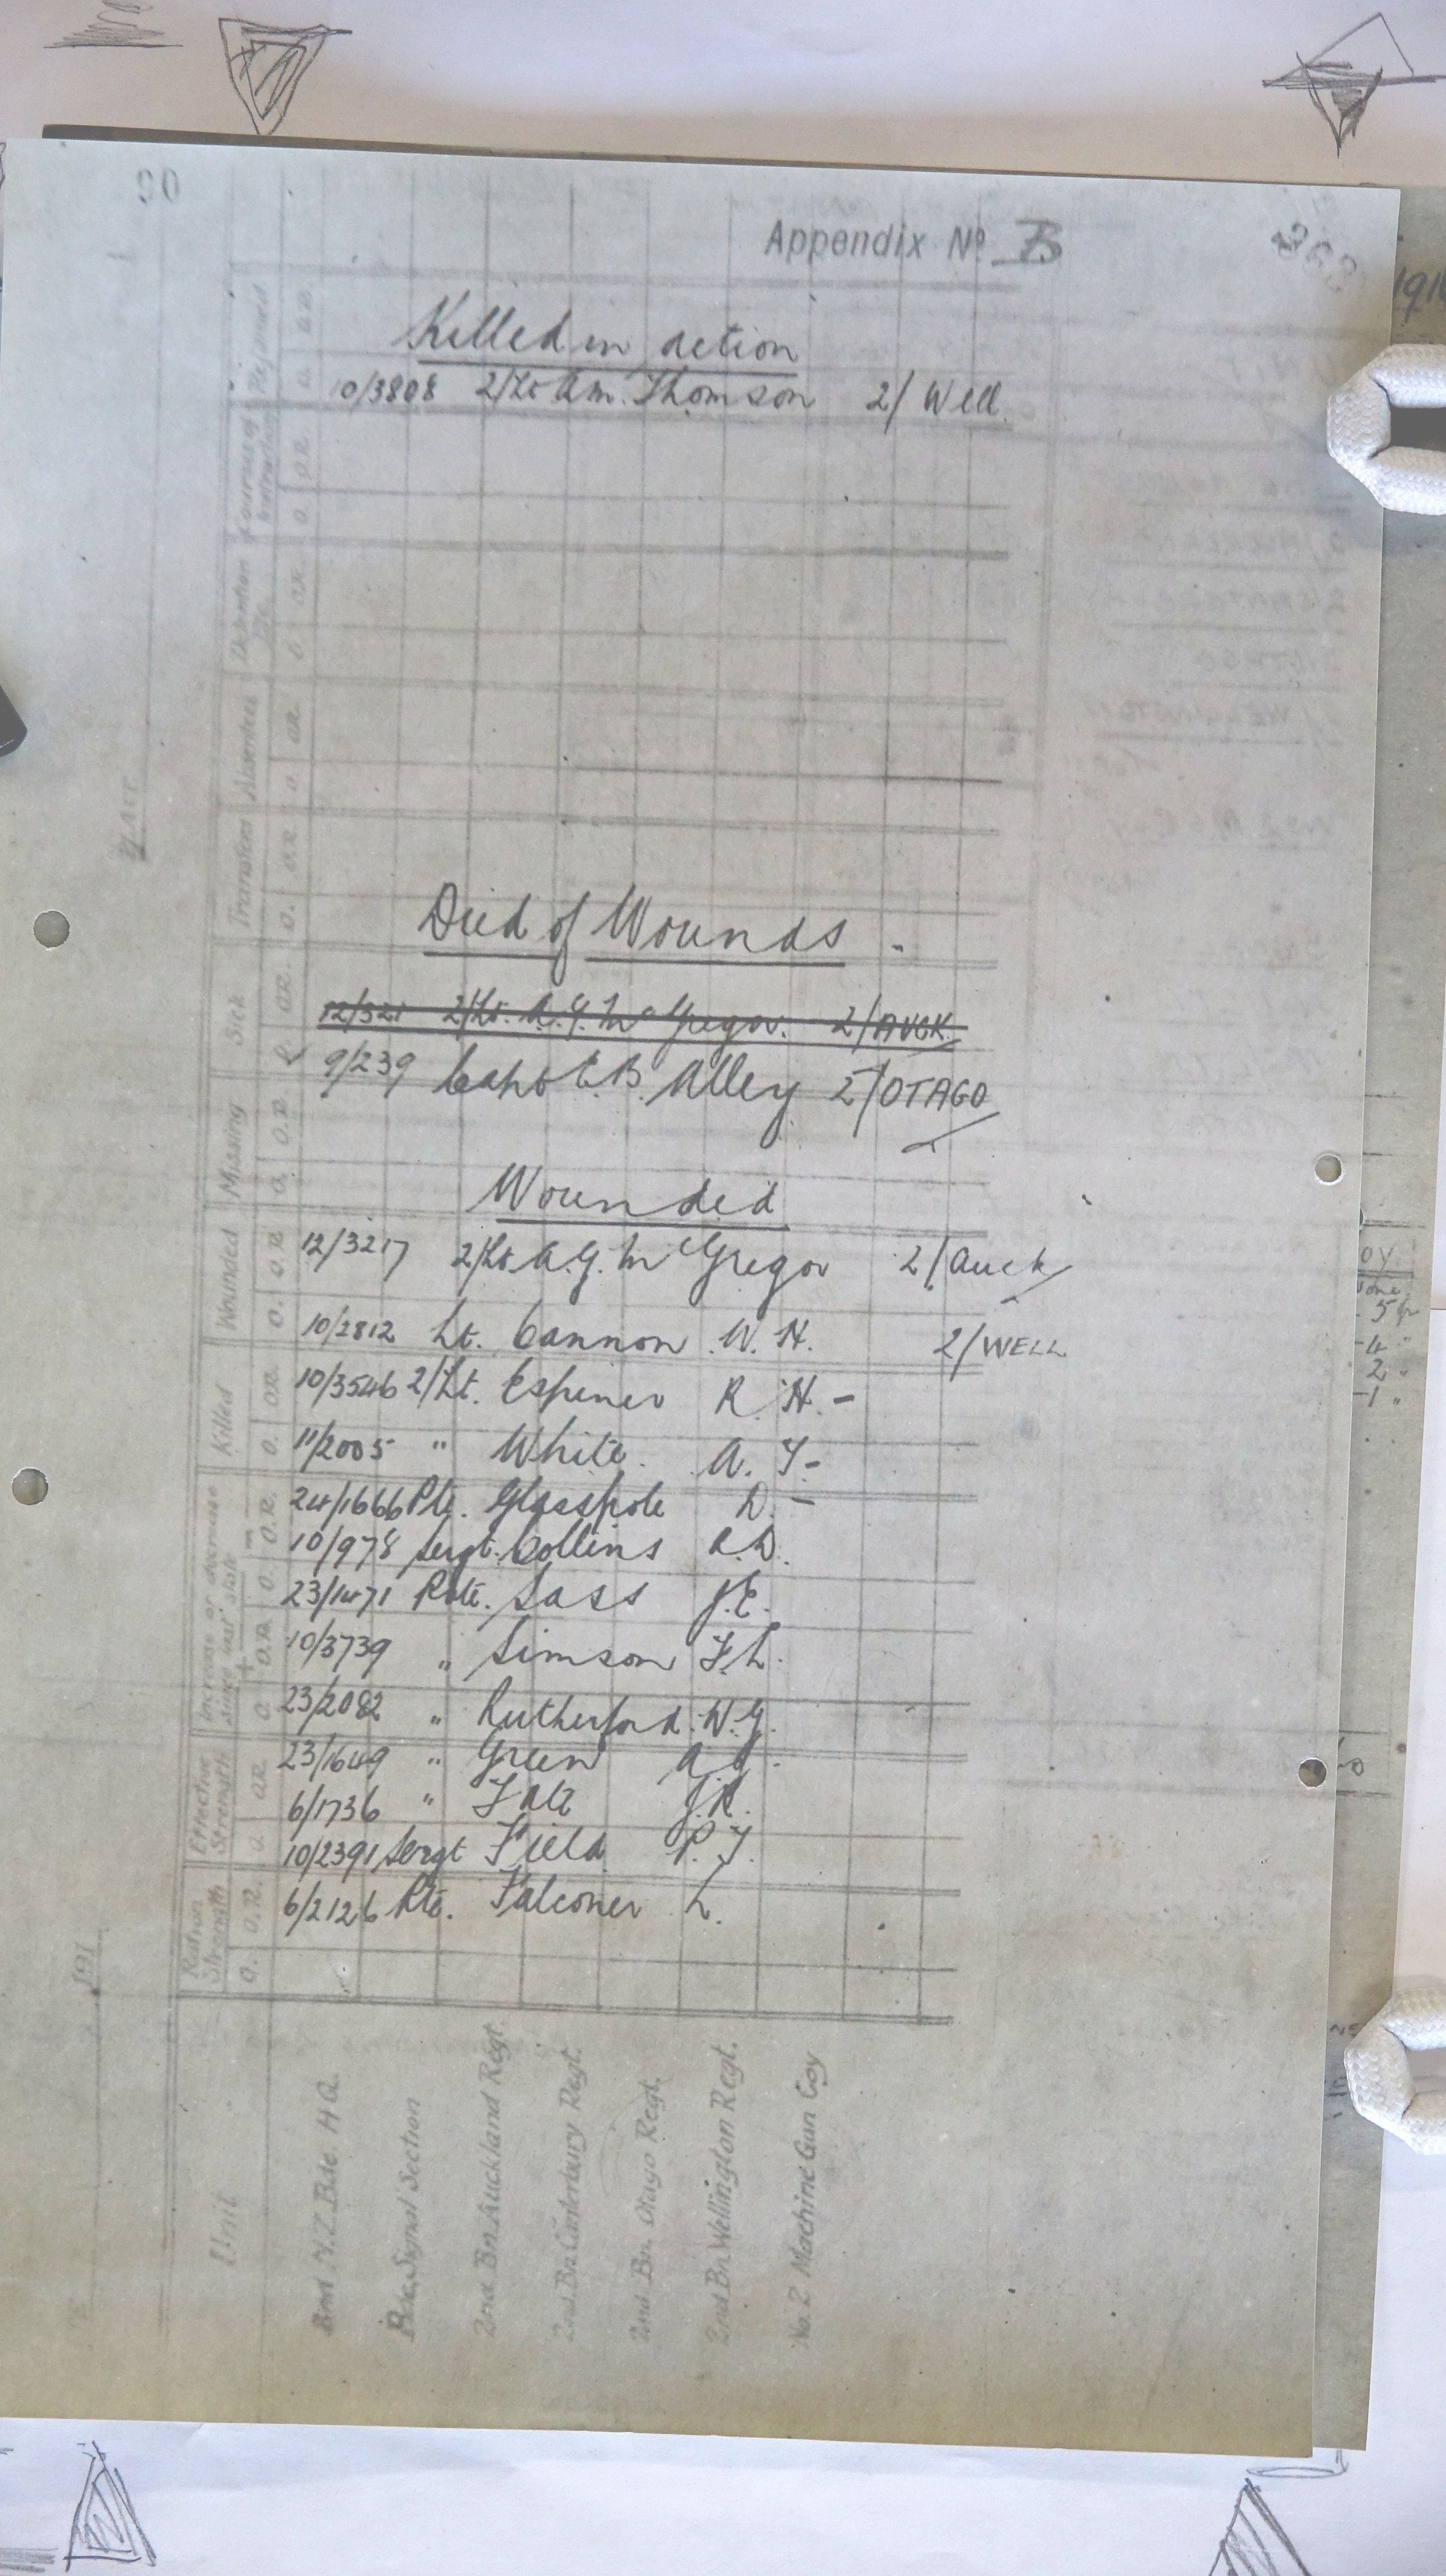 Appendix No B
Killed in action
10/3808 2/Lt A.M. Thomson 2/ Well.
Died of Wounds.
12/321 2/Lt. A.G. McGregor. 2/AUCK.
9/239 Capt E.B. Alley 2/OTAGO
Wounded
12/3217 2/Lt A.G. McGregor 2/Auck
10/2812 Lt. Cannon W. H. 2/WELL
10/3546 2/Lt. Espiner R. H. -
11/2005 " White. A. -
24/1666 Pte. Glasspole D. -
10/978 Sergt. Collins R.D.
23/1471 Pte. Sass J.E.
10/3739 " Simson F.L.
23/2082 " Rutherford. W.G.
23/1649 " Green A.
6/1736 " J.R.
10/2391 Sergt Field P.J.
6/2126 Pte. Falconer L.
Rejoined
Courses of
Detention
Absentees
Transfers
Sick
Missing
Wounded
Killed
Increase or decrease
since last state
Effective
Strength
Ration
Strength
O. O.R.
Unit
2nd N.Z. Bde. H.Q.
Bde. Signal Section
2nd. Bn. Auckland Regt.
2nd. Bn. Canterbury Regt.
2nd Bn. Otago Regt.
2nd Bn. Wellington Regt.
No. 2 Machine Gun Coy